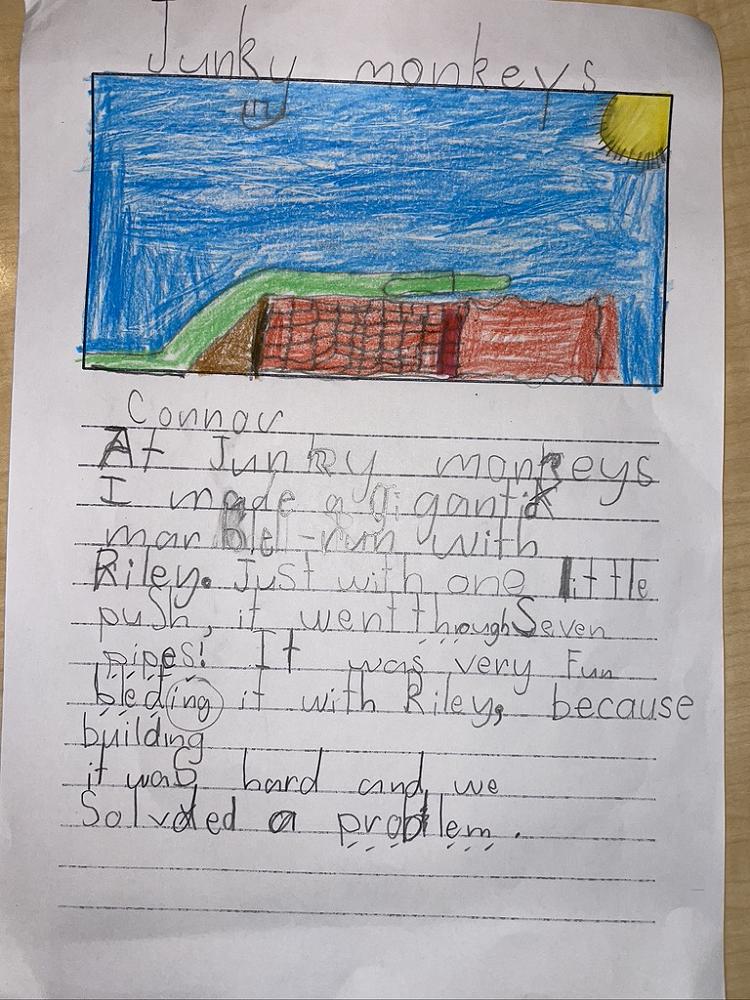 Junky monkeys
Connor
At Junky monkeys
I made a gigantik
marble-run with
Riley. Just with one little
push, it went through Seven
pipes! It was very Fun
bleding it with Riley, because
building
it was hard and we
Solvded a problem.